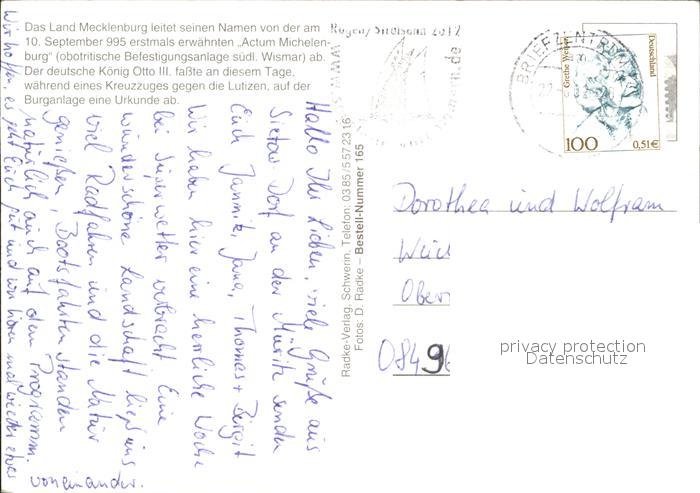 Das Land Mecklenburg leitet seinen Namen von der am
10. September 995 erstmals erwähnten „Actum Michelen-
burg“ (obotritische Befestigungsanlage südl. Wismar) ab.
Der deutsche König Otto III. faßte an diesem Tage,
während eines Kreuzzuges gegen die Lutizen, auf der
Burganlage eine Urkunde ab.
Hallo Ihr Lieben, viele Grüße aus
Sietow Dorf an der Müritz senden
Euch Jannik, Jana, Thomas + Birgit
Wir haben hier eine herrliche Woche
bei Superwetter verbracht. Eine
wunderschöne Landschaft ließ uns
viel Radfahren und die Natur
genießen, Bootsfahrten standen
natürlich auch auf dem Programm.
Wir hoffen, es geht Euch gut und wir hören mal wieder etwas
voneinander.
Radke-Verlag, Schwerin, Telefon: 0385/5572316
Fotos: D. Radke – Bestell-Nummer 165
Rügen/Stralsund 2012
BRIEFZENTRUM
Grethe Weiser
Deutschland
100
0,51€
Dorothea und Wolfram
084
privacy protection
Datenschutz